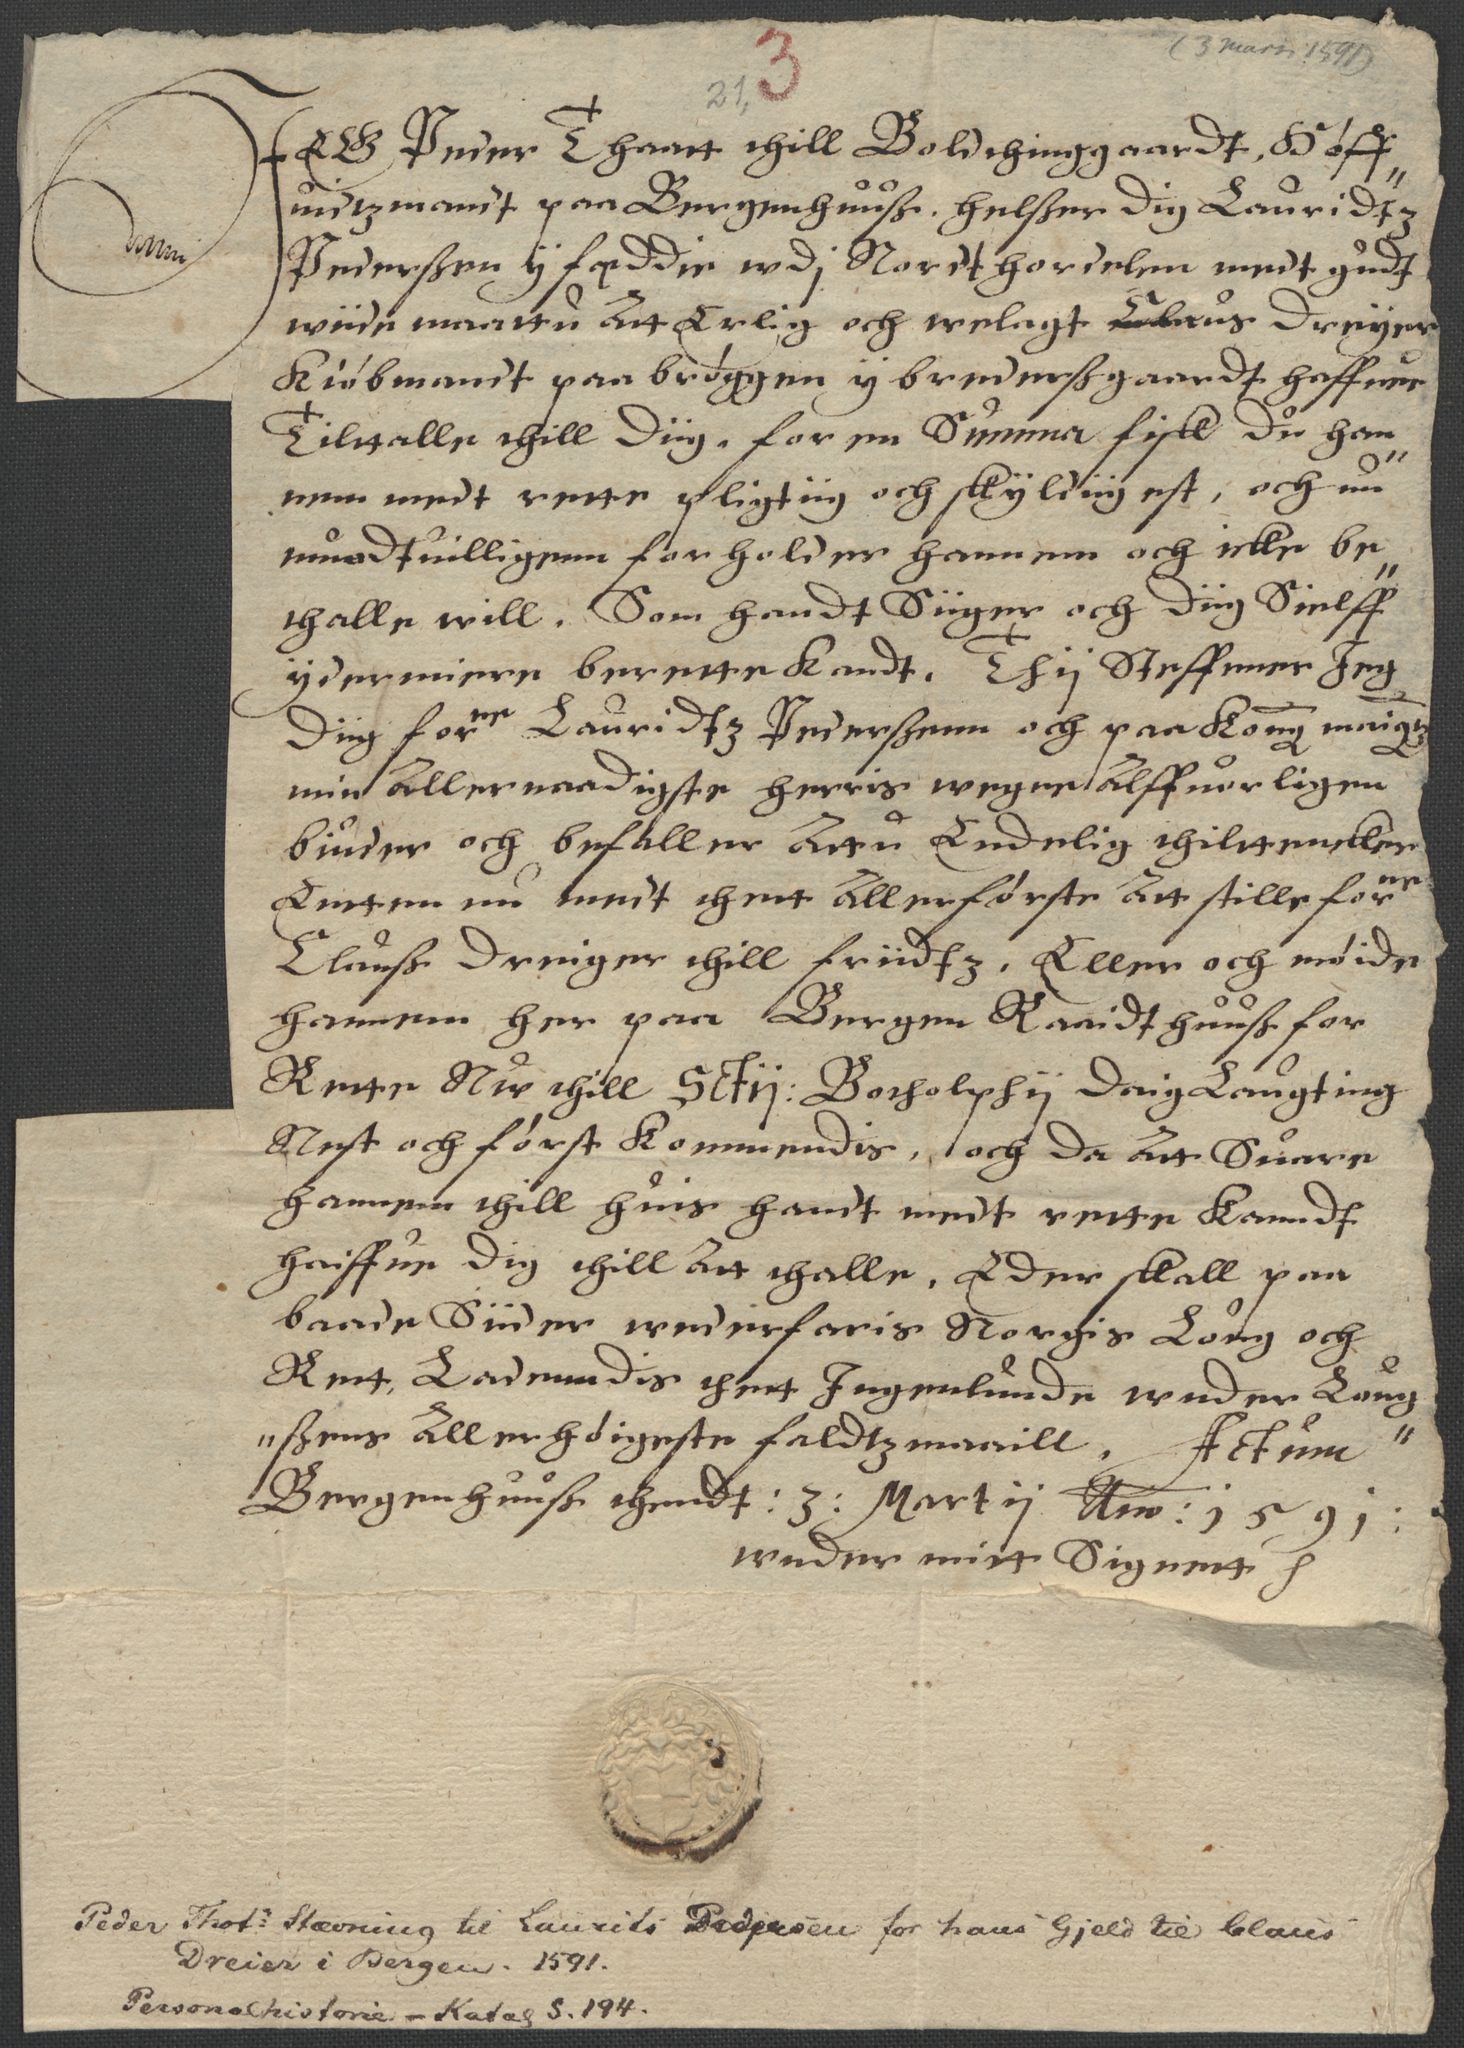 (3 marts 1591)
21, 3
JEG Peder Thaatt thill Bolthinggaardt, Høff„
uidtzmandt paa Bergenhuuß. helßer dig Lauridtz
Pederßen ÿ fædie wdj Nordthordelen medt gudt
wiide maattu Att Erlig och welagt Claus Dreÿer
Kiøbmandt paa brÿggen ÿ bredersgaardt haffuer
Tilttalle thill diig. for en Summa fisk du han„
nem medt rette pligtiig och skÿldiig est, och nu
muodtuilligenn forholder hannem och icke be„
thalle will. Som handt Siiger och diig Sielff
ÿdermiere berette kandt. Thÿ Steffner Jeg
diig forne Lauridtz Pederßenn och paa Kong maigtz
min Allernaadigste herris wegne Alffuorligen
biuder och befaller Attu Endelig thilttencker
Entten nu medt thett Allerførste Att stille forne
Clauß Dreiger thill friidtz, Eller och møide
hannem her paa Bergen Raaidthuuß for
Rette Nw thill Sctij: Botholphij daig Laugting
Nest och først Kommendis, och da Att Suare
hannem thill huis handt medt rette kanndt
haiffue dig thill Att thalle, Eder skall paa
baade Siider wederfaris Norgis Loug och
Rett, Ladenndis thett Ingenlunde wnder Loug
„ßens Allerhøigeste faldtzmaaill, Actum„
Bergenhuuß thendt: 3: Martij Ano: 1591:
wnder mitt Signett
Peder Thots Stævning til Laurits Pedersen for hans Gjeld til Claus
Dreier i Bergen. 1591.
Personalhistorie - Katal S. 194.